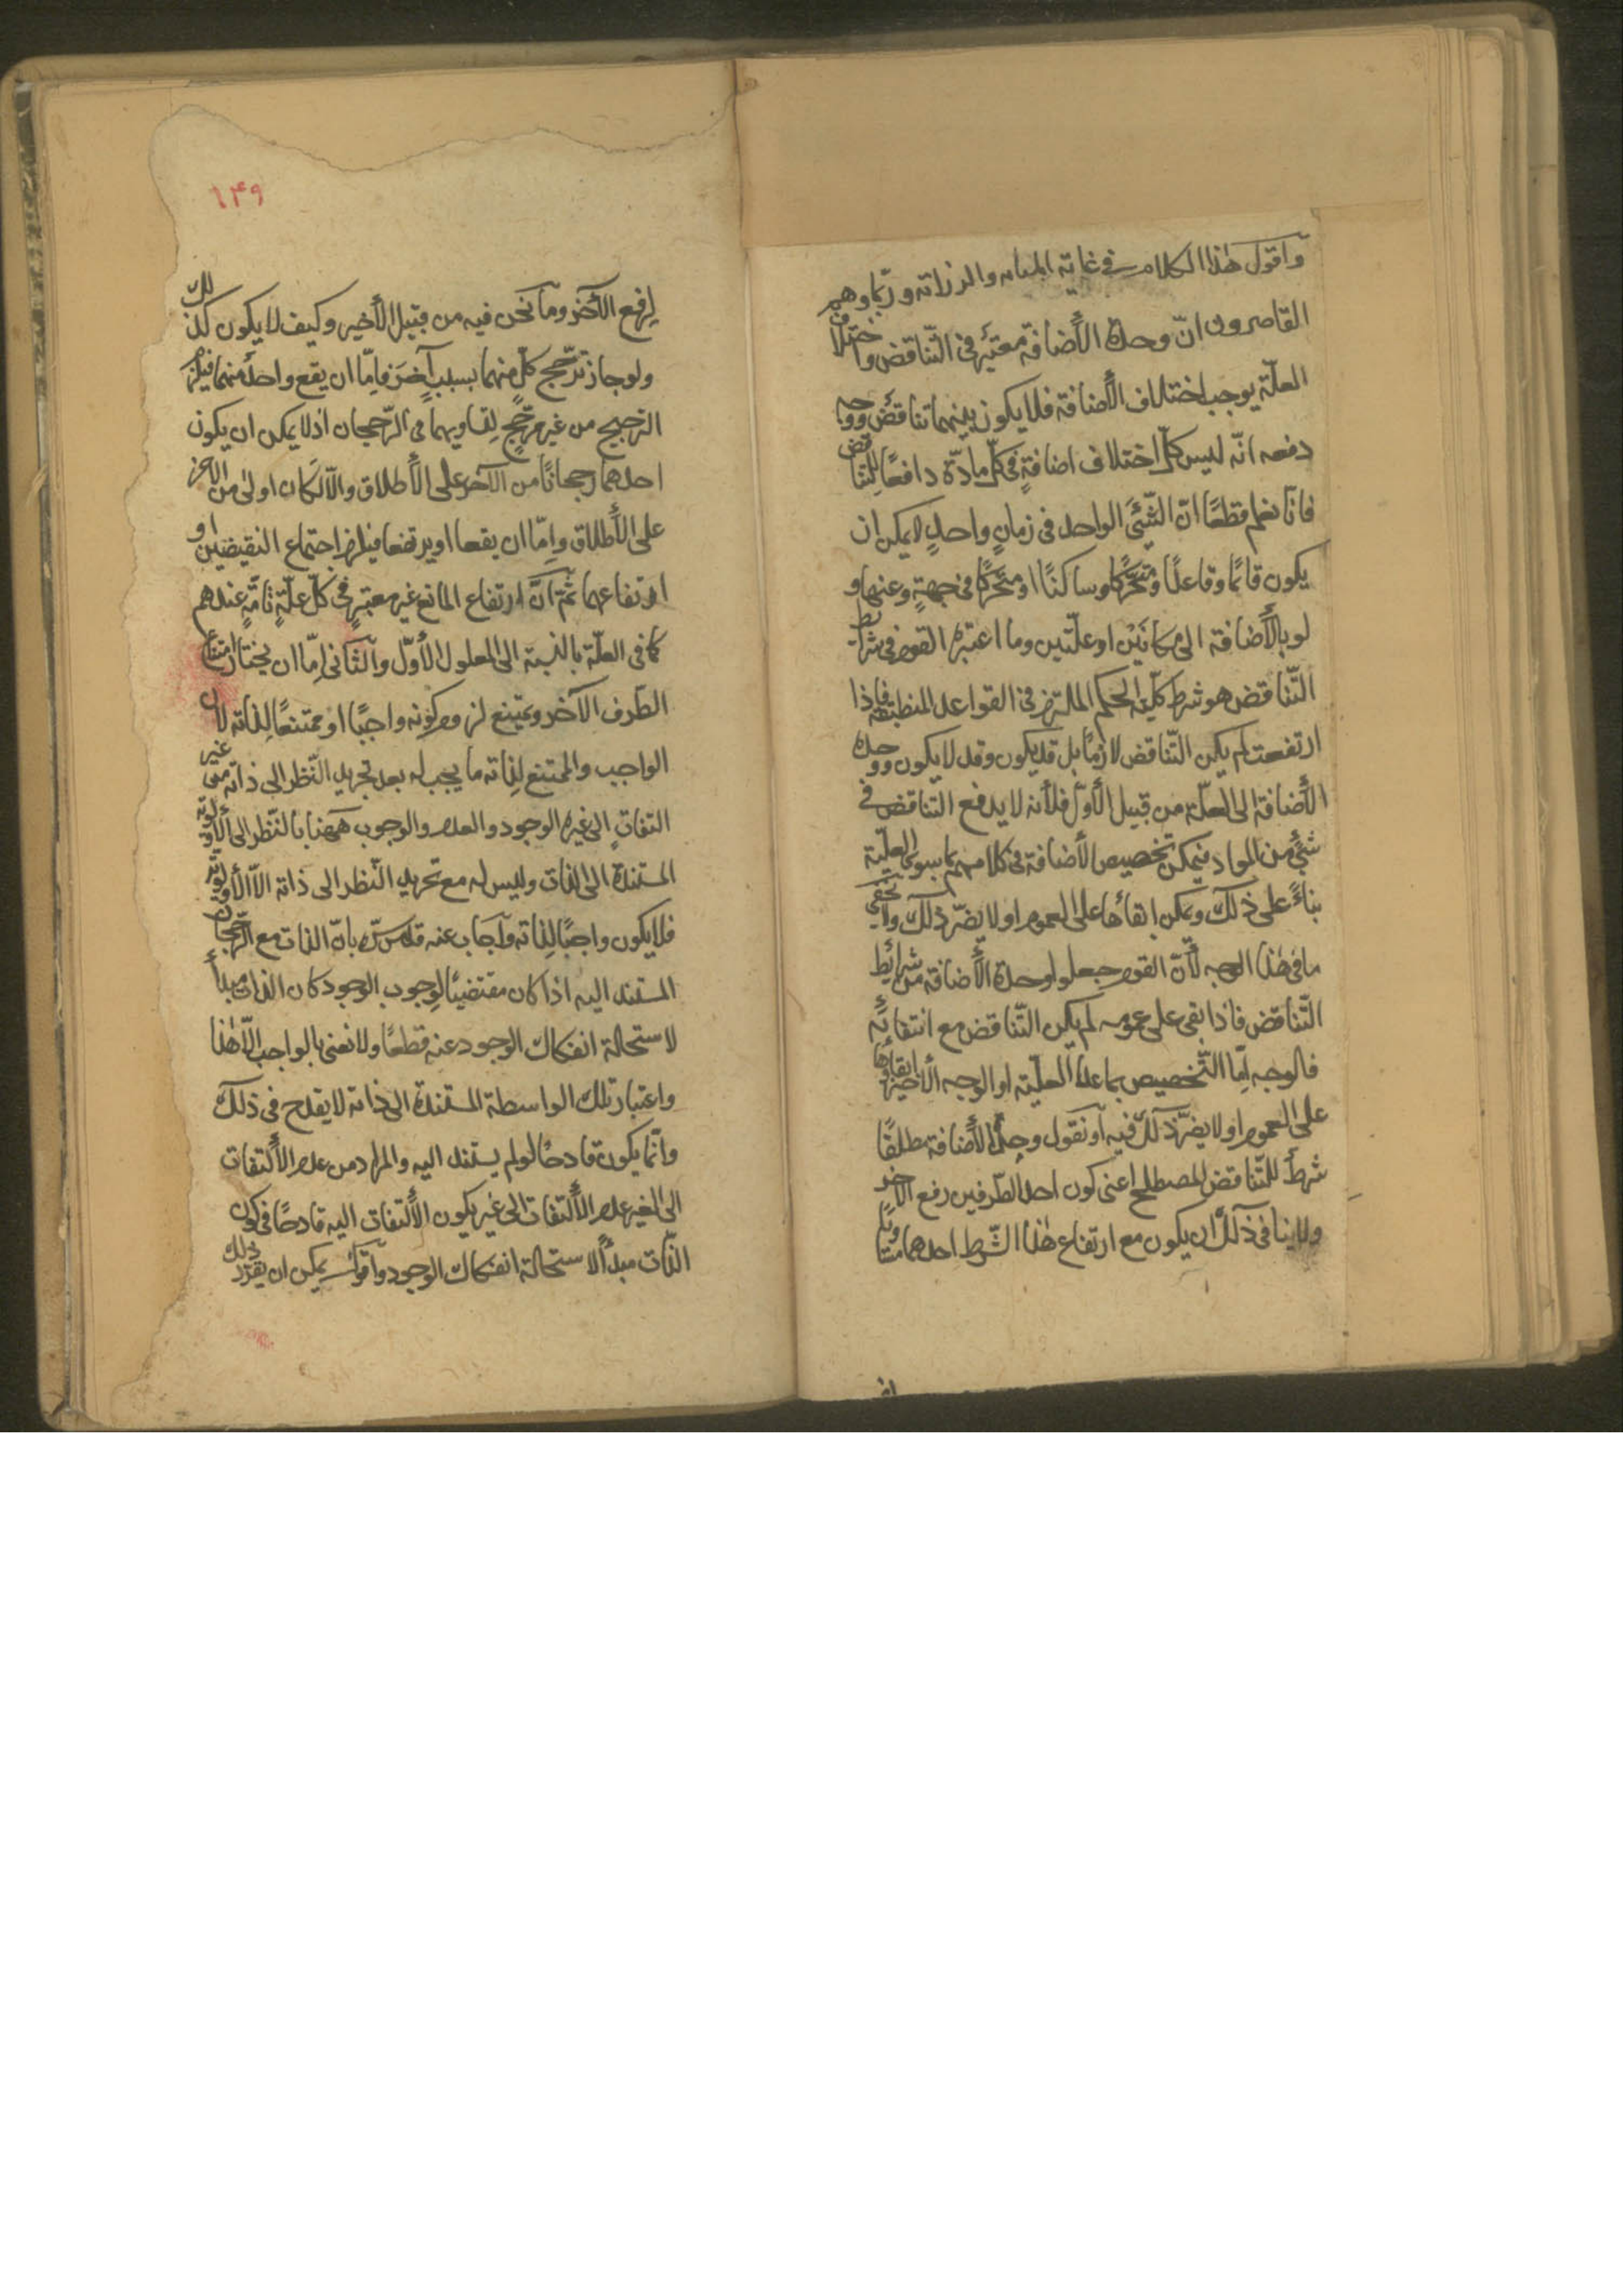 واقول هٰذا الكلام في غاية المتانه والرزانه وربّما وهم
القاصرون انّ وحدة الأضافة معتبرة في التّناقض واختلاف
العلّة يوجب اختلاف الأضافة فلا يكون بينهما تناقض ووجه
دفعه انّه ليس كلّ اختلاف اضافةٍ في كلّ مادّة دافعًا للتناقض
فانّا نعلم قطعًا انّ الشّئ الواحد في زمانٍ واحدٍ لا يمكن ان
يكون قائمًا وقاعدًا ومتحرّكا وساكنًا او متحرّكا في جهةٍ وعنها و
لو بالأضافة الى مكانَين او علّتين وما اعتبره القوم في شرائط
التّناقض هو شرط كليّة الحكم الملتزم في القواعد المنطقيّة فاذا
ارتفعت لم يكن التّناقض لازمًا بل قد يكون وقد لا يكون ووحدة
الأضافة الى العلّة من قبيل الأوّل فلأنه لا يدفع التّناقض في
شئٍ من المواد فيمكن تخصيص الأضافة في كلامهم بما سوى العلّية
بناءً على ذلك ويمكن ابقاءها على العموم اولا يضرّ ذلك ولا يخفى
ما في هٰذا الوجه لأنّ القوم جعلوا وحدة الأضافة من شرائط
التّناقض فاذا بقى على عمومه لم يكن التّناقض مع انتفائه
فالوجه امّا التّخصيص بما عدا العلّية او الوجه الأخير ابقاؤها
على العموم اولا يضرّ ذلك فيه او نقول وحدة الأضافة مطلقًا
شرط للتّناقض المصطلح اعنى كون احد الطّرفين رفع الآخر
ولا ينافى ذلك ان يكون مع ارتفاع هٰذا الشّرط احدهما
١٤٩
لرفع الآخر وما نحن فيه من قبيل الأخير وكيف لا يكون كذلك
ولو جاز ترجّح كلّ منهما بسببٍ آخر فامّا ان يقع واحد منهما فيلزم
الترجيح من غير مرجّحٍ لتساويهما في الرّجحان اذ لا يمكن ان يكون
احدهما رجحانًا من الآخر على الأطلاق والّا لكان اولى من الآخر
على الأطلاق وامّا ان يقعا او يرتفعا فيلزم اجتماع النقيضين او
ارتفاعهما ثمّ انّ ارتفاع المانع غير معتبرٍ في كلّ علّةٍ تامّةٍ عندهم
كما في العلّة بالنسبة الى المعلول الأوّل والثّانى امّا ان يختار امتناع
الطّرف الآخر ويمنع لزوم كونه واجبًا او ممتنعًا لذاته لانّ
الواجب والممتنع لذاته ما يجب له بعد تجريد النّظر الى ذاته من غير
التفاتٍ الى غيره الوجود والعدم والوجوب ههنا بالنّظر الى الأولويّة
المستندة الى الذات وليس له مع تجريد النّظر الى ذاته الّا الأولويّة
فلا يكون واجبًا لذاته واجاب عنه قدّس سرّه بانّ الذات مع الرّجحان
المستند اليه اذا كان مقتضيًا لوجوب الوجود كان الذات مبدأ
لاستحالة انفكاك الوجود عنه قطعًا ولا نعنى بالواجب الّا هٰذا
واعتبار تلك الواسطة المستندة الى ذاته لا يقدح في ذلك
وانّما يكون قادحًا لو لم يستند اليه والمراد من عدم الألتفات
الى الغير عدم الألتفات الى غير يكون الألتفات اليه قادحًا في كون
الذّات مبدأ لاستحالة انفكاك الوجود واقول يمكن ان يقرّر ذلك